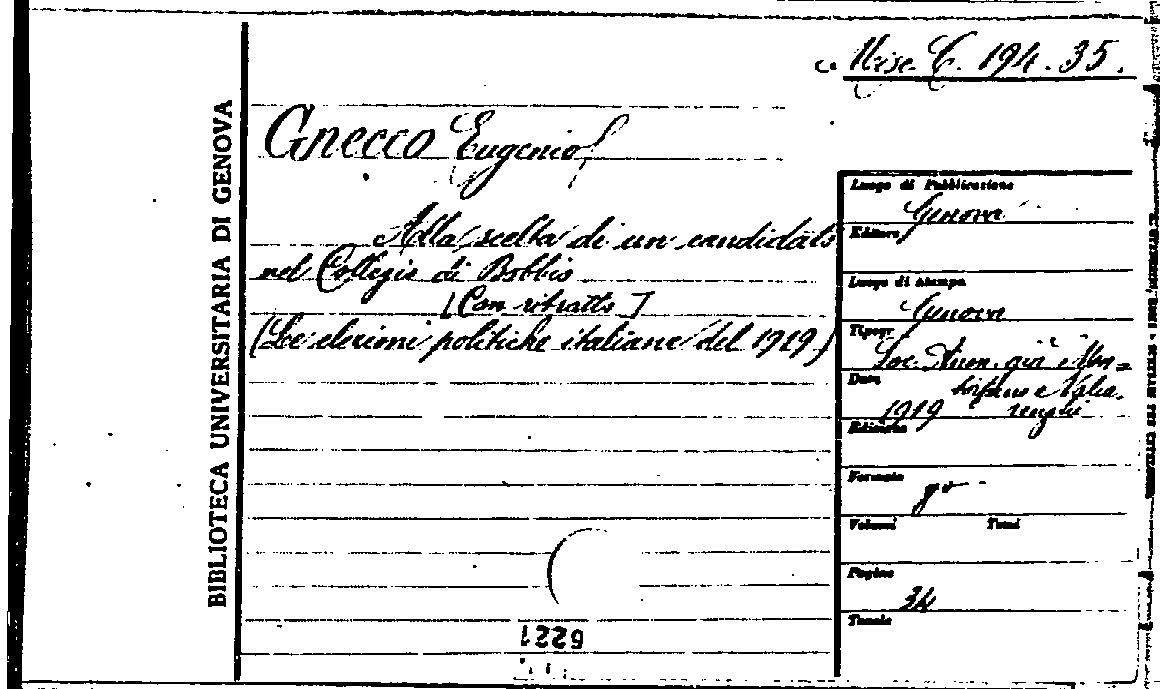 Misc. C. 194.35.
BIBLIOTECA UNIVERSITARIA DI GENOVA
Gnecco Eugenio
Alla scelta di un candidato
nel Collegio di Bobbio
[Con ritratto]
(Le elezioni politiche italiane del 1919)
Luogo di Pubblicazione
Genova
Editore
Luogo di stampa
Genova
Tipogr
Soc. Anon. già Mon=
Data
1919
Formato
8º
Volumi Tomi
Pagine
34
Tavole
6221